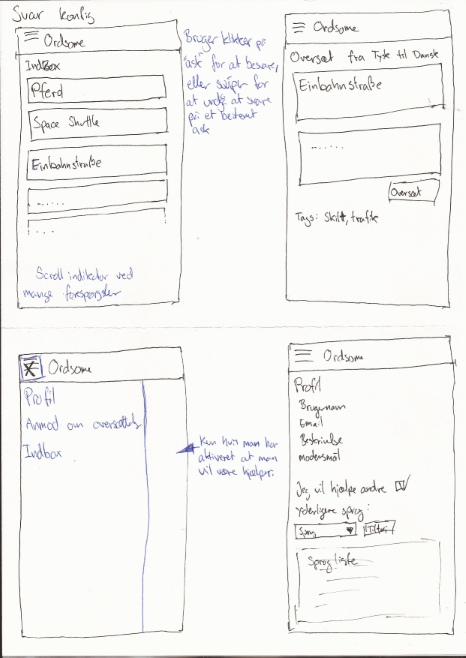 Svar konfig
Ordsome
Indbox
Pferd
Space Shuttle
Einbahnstraße
- .....
. . .
Scroll indikator ved
mange forespørgsler
Bruger klikker på
ask for at besvare,
eller swiper for
at undgå at svare
på et bestemt
ask
Ordsome
Oversæt fra Tysk til Dansk
Einbahnstraße
- .....
Oversæt
Tags: Skilt, trafik
Ordsome
Profil
Anmod om oversættelse
Indbox
Kun hvis man har
aktiveret at man
vil være hjælper.
Ordsome
Profil
Brugernavn
Email
Beskrivelse
modersmål
Jeg vil hjælpe andre
Yderligere sprog:
Sprog
Tilføj
Sprog liste